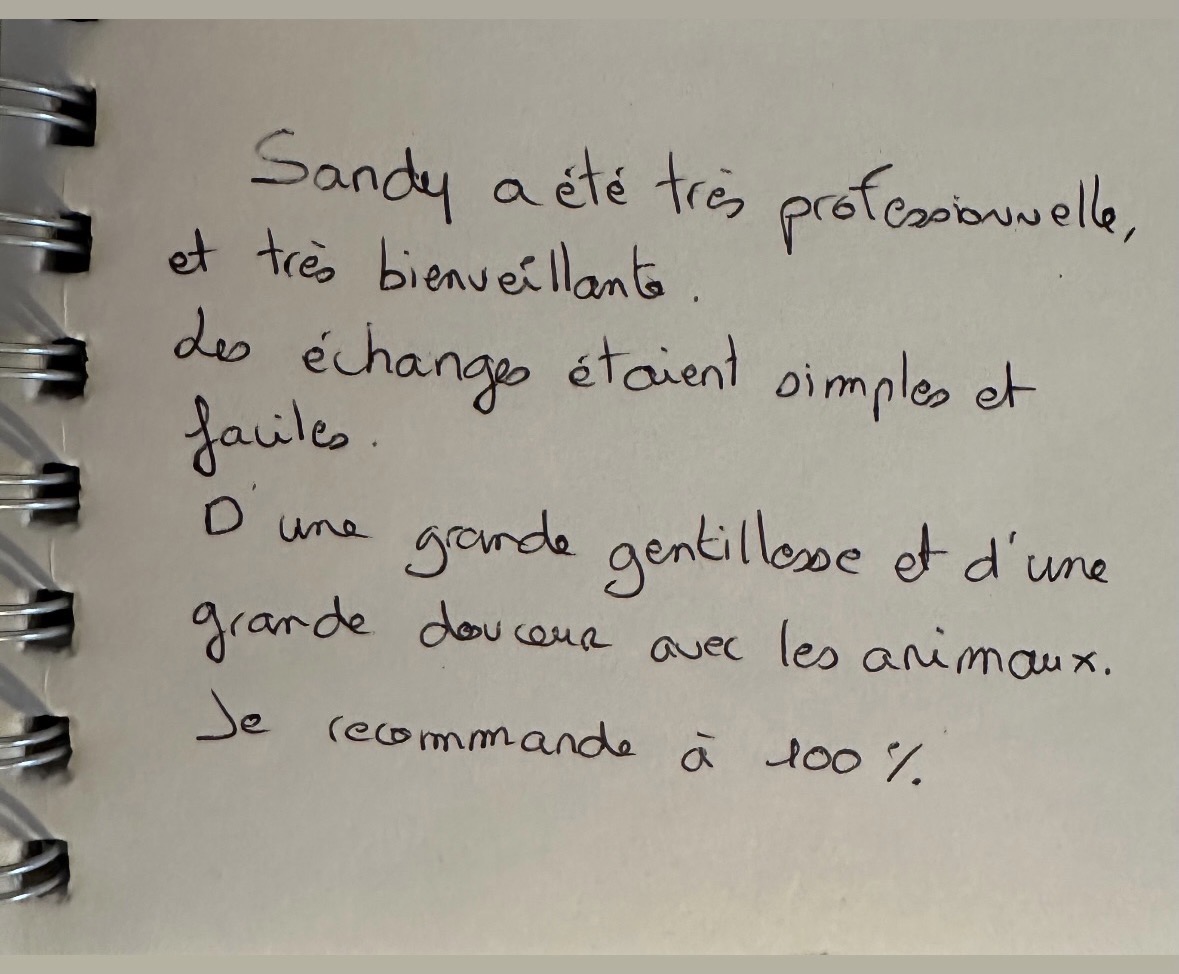 Sandy a été très professionnelle,
et très bienveillante.
Les échanges étaient simples et
faciles.
D'une grande gentillesse et d'une
grande douceur avec les animaux.
Je recommande à 100 %.